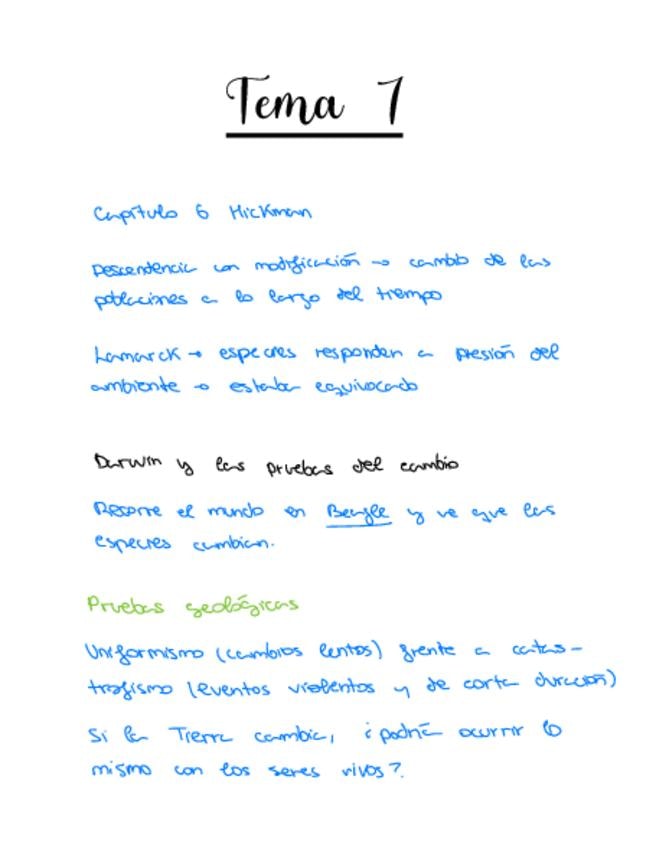 Tema 1
Capítulo 6 Hickman
Descendencia con modificación → cambio de las
poblaciones a lo largo del tiempo
Lamarck → especies responden a presión del
ambiente → estaba equivocado
Darwin y las pruebas del cambio
Recorre el mundo en Beagle y ve que las
especies cambian.
Pruebas geológicas
Uniformismo (cambios lentos) frente a catas-
trofismo (eventos violentos y de corta duración)
Si la Tierra cambia, ¿podría ocurrir lo
mismo con los seres vivos?